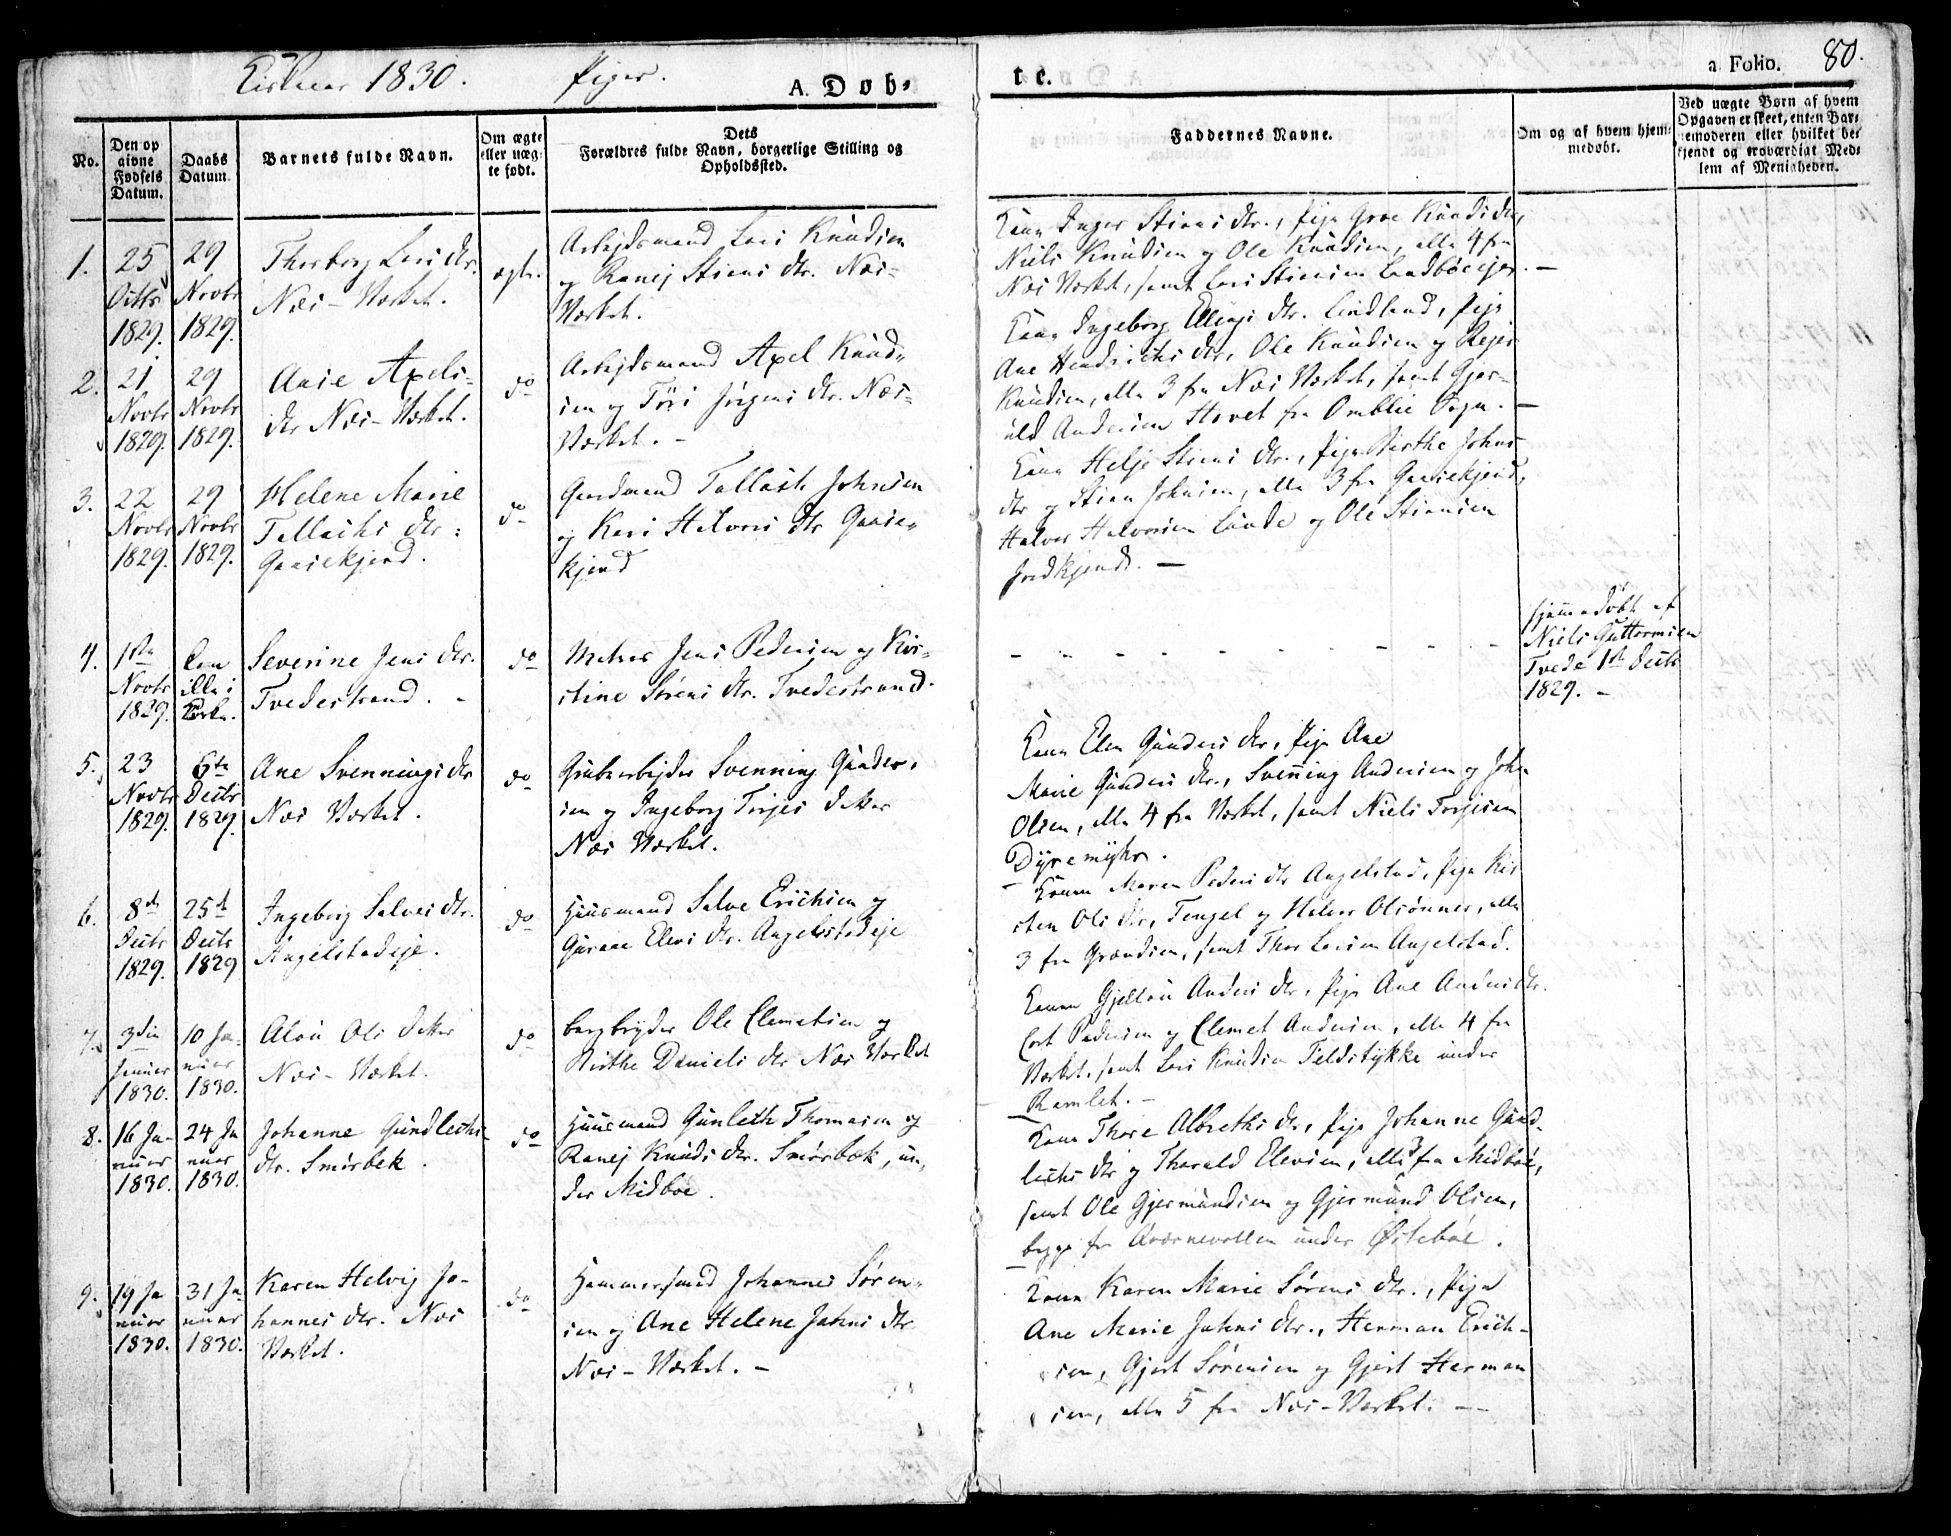 Kirkeaar 1830. Piger.
A. Døb-
te.
a Folio. 80.
No.
Den op
givne
Fødsels
Datum.
Daabs
Datum.
Barnets fulde Navn.
Om ægte
eller uæg-
te født.
Dets
Forældres fulde Navn, borgerlige Stilling og
Opholdssted.
Faddernes Navne.
Om og af hvem hjem-
medøbt.
Ved uægte Børn af hvem
Opgaven er skeet, enten Bar-
nemoderen eller hvilket be-
kjendt og troværdigt Med-
lem af Menigheden.
1.
25
Octbr
1829.
29
Novbr
1829.
Thorborg Lars dtr.
Næs-Værket.
ægte.
Arbejdsmand Lars Knudsen
og Ranej Stians dtr. Næs-
Værket.
Kone Inger Stians dtr., Pige Groe Knuds dtr,
Niels Knudsen og Ole Knudsen, alle 4 fra
Næs Værket, samt Lars Stiansen Landbøeeje. —
2.
21
Novbr
1829.
29
Novbr
1829.
Aase Axels-
dtr Næs-Værket.
do
Arbejdsmand Axel Knud-
sen og Jørgens dtr. Næs-
Værket. -
Kone Ingeborg Ellings dtr. Lindland, Pige
Ane Hendrichs dtr, Ole Knudsen og Rejer
Knudsen, alle 3 fra Næs Værket, samt Gjer-
uld Andersen Hovet fra Omblie Sogn. —
3.
22
Novbr
1829.
29
Novbr
1829.
Helene Marie
Tellachs dtr:
Gaasekjend.
do
Gaardmand Tallach Johnsen
og Kari Halvors dtr Gaase-
kjend
Kone Helje Stians dtr., Pige Birthe Johns
dtr og Stian Johnsen, alle 3 fra Gaasekjend,
Halvor Halvorsen Lunde og Ole Stiansen
Jordkjend. —
4.
1ste
Novbr
1829.
Kom
ille i
Kirke.
Severine Jens dtr.
Tvedestrand. -
do
Jens Pedersen og Kir-
stine Sørens dtr. Tvedestrand.
- - - - - - - - -
hjemmedøbt af
Niels Guttormsen
Tvede 1ste Decbr
1829. -
5.
23
Novbr
1829.
6te
Decbr
1829.
Ane Svennings dtr
Næs Værket.
do
Grubearbejder Svenning Gunder-
sen og Ingeborg Torjes datter
Næs Værket.
Kone Elen Gunders dtr, Pige Ane
Marie Gunders dtr., Svenning Andersen og John
Olsen, alle 4 fra Værket, samt Niels Torjesen
Dyremyhr.
6.
8de
Decbr
1829.
25de
Decbr
1829
Ingeborg Salves dtr.
Angelstadeje.
do
Huusmand Salve Erichsen og
Gurine Elevs dtr. Angelstadeje
Konen Maren Peders dtr Angelstad, Pige Kir-
sten Ols dtr, Tengel og Halvor Olsønner, alle
3 fra Grændsen, samt Thor Larsen Angelstad.
7.
3die
Januar
1830.
10 Ja-
nuar
1830.
Alou Ols datter
Næs-Værket.
do
Bergbryder Ole Clemetsen og
Birthe Daniels dtr Næs Værket
Konen Gjellou Anders dtr, Pige Ane Anders dtr.
Cort Pedersen og Clemet Andersen, alle 4 fra
Værket, samt Lars Knudsen Feldstykke under
Ramlet. -
8.
16 Ja-
nuar
1830.
24 Ja
nuar
1830.
Johanne Gundlechs-
dtr. Smørbek.
do
Huusmand Gunleth Thomasen og
Ranej Knuds dtr. Smørbæk, un-
der Midbøe.
Kone Thore Albreths dtr, Pige Johanne Gund-
lechs dtr og Tharald Elevsen, alle 3 fra Midbøe,
samt Ole Gjermundsen og Gjermund Olsen,
begge fra Qværnevollen under Østebøe.
9.
19 Ja
nuar
1830.
31 Ja-
nuar
1830.
Karen Helvig Jo-
hannes dtr. Næs
Værket.
do
Hammersmed Johannes Søren-
sen og Ane Helene Johns dtr
Næs-Værket. -
Kone Karen Marie Sørens dtr., Pige
Ane Marie Johns dtr., Herman Erich-
sen, Gjert Sørensen og Gjert Herman
sen, alle 5 fra Næs-Værket. —